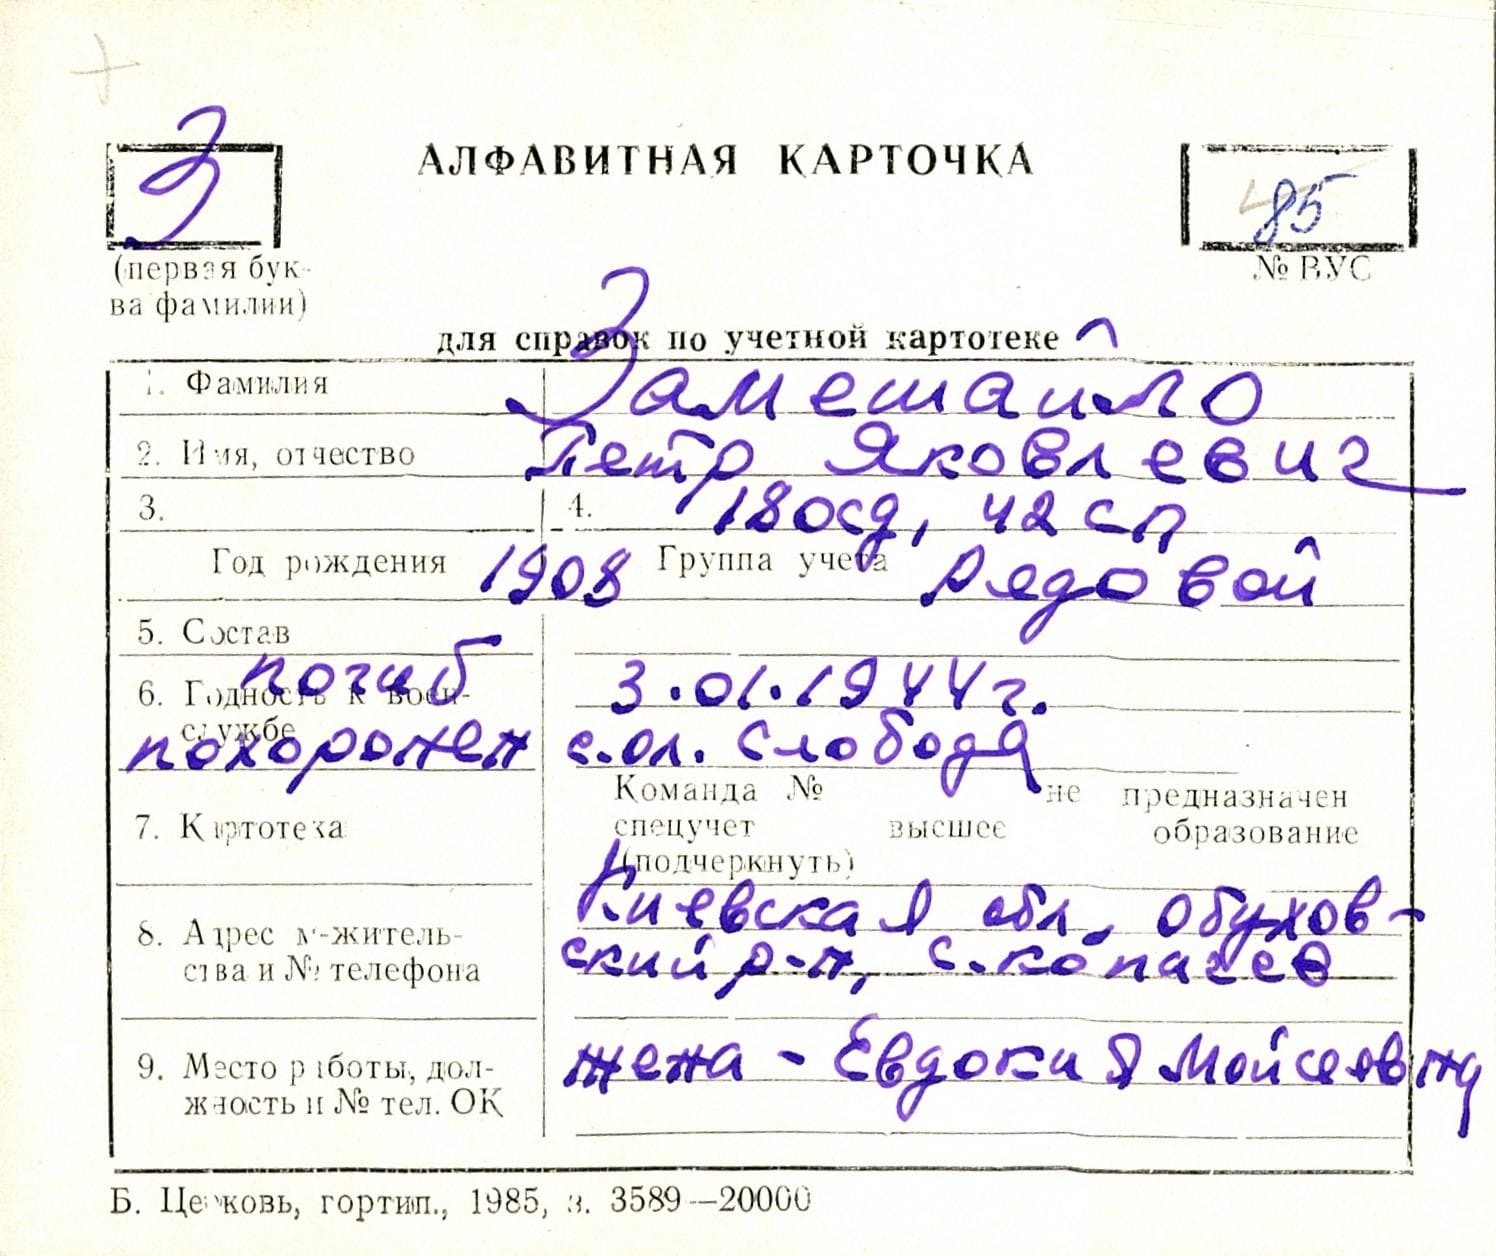 З
АЛФАВИТНАЯ КАРТОЧКА
85
(первая бук-
ва фамилии)
№ ВУС
для справок по учетной картотеке
1. Фамилия Замешайло
2. Имя, отчество Петр Яковлевич
3. 4. 180сд, 42 сп
Год рождения 1908 Группа учета Рядовой
5. Состав
погиб 3.01.1944г.
6. Годность к воен-
службе
похоронен с.ол. Слобода
Команда № не предназначен
7. Картотека спецучет высшее образование
(подчеркнуть)
Киевская обл., Обухов-
8. Адрес м-житель-
ский р-н, с. Копачев
ства и № телефона
9. Место работы, дол- жена - Евдокия Мойсеевна
жность и № тел. ОК
Б. Церковь, гортип., 1985, з. 3589—20000